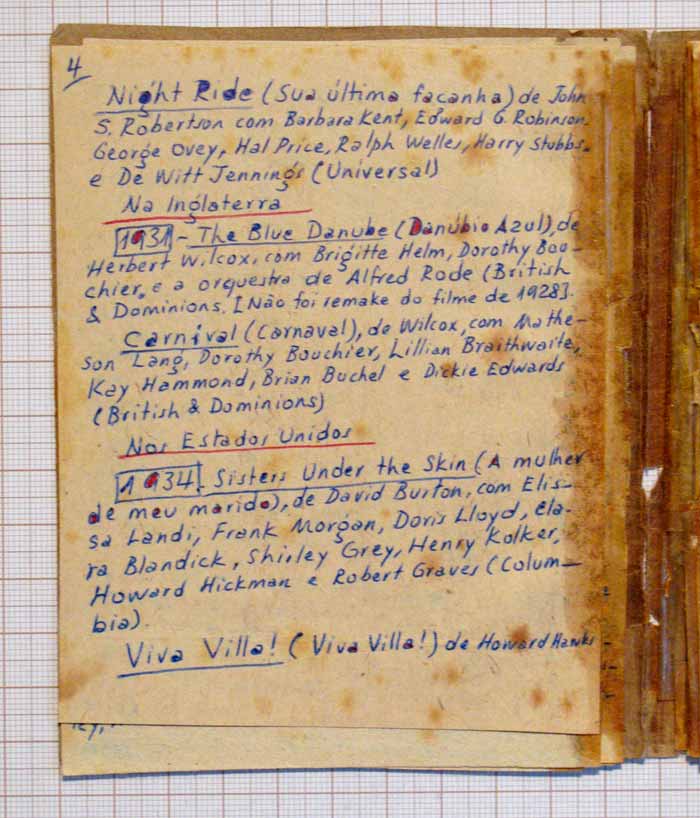 4
Night Ride (Sua última façanha) de John
S. Robertson com Barbara Kent, Edward G. Robinson,
George Ovey, Hal Price, Ralph Welles, Harry Stubbs.
e De Witt Jennings (Universal)
Na Inglaterra
1931 - The Blue Danube (Danúbio Azul), de
Herbert Wilcox, com Brigitte Helm, Dorothy Bou-
chier, e a orquestra de Alfred Rode (British
& Dominions. [Não foi remake do filme de 1928].
Carnival (Carnaval), de Wilcox, com Mathe-
son Lang, Dorothy Bouchier, Lillian Braithwaite,
Kay Hammond, Brian Buchel e Dickie Edwards
(British & Dominions)
Nos Estados Unidos
1934. Sisters Under the Skin (A mulher
de meu marido), de David Burton, com Elis-
sa Landi, Frank Morgan, Doris Lloyd, Cla-
ra Blandick, Shirley Grey, Henry Kolker,
Howard Hickman e Robert Graves (Colum-
bia).
Viva Villa! (Viva Villa!) de Howard Hawks